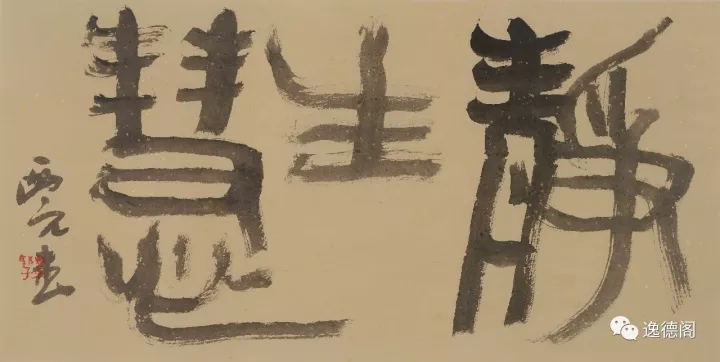 靜生慧
西元書
逸德阁